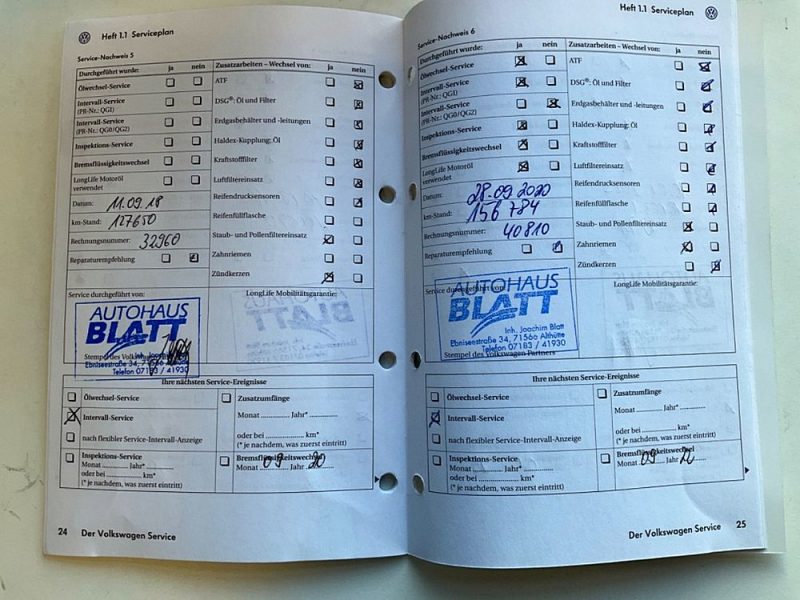 Heft 1.1 Serviceplan
Service-Nachweis 5
Durchgeführt wurde: ja nein
Ölwechsel-Service
Intervall-Service
(PR-Nr.: QGI)
Intervall-Service
(PR-Nr.: QG0/QG2)
Inspektions-Service
Bremsflüssigkeitswechsel
LongLife Motoröl
verwendet
Datum: 11.09.18
km-Stand: 127650
Rechnungsnummer: 32960
Reparaturempfehlung
Zusatzarbeiten – Wechsel von: ja nein
ATF
DSG®: Öl und Filter
Erdgasbehälter und -leitungen
Haldex-Kupplung, Öl
Kraftstofffilter
Luftfiltereinsatz
Reifendrucksensoren
Reifenfüllflasche
Staub- und Pollenfiltereinsatz
Zahnriemen
Zündkerzen
Service durchgeführt von:
LongLife Mobilitätsgarantie:
AUTOHAUS
BLATT
Inh. Joachim
Ebniseestraße 34, 71566
Telefon 07183 / 41930
Stempel des
Ihre nächsten Service-Ereignisse
Ölwechsel-Service
Intervall-Service
nach flexibler Service-Intervall-Anzeige
Inspektions-Service
Monat ............ Jahr* ............
oder bei ............ km*
(* je nachdem, was zuerst eintritt)
Zusatzumfänge
Monat ............ Jahr* ............
oder bei ............ km*
(* je nachdem, was zuerst eintritt)
Bremsflüssigkeitswechsel
Monat 09 Jahr 20
24 Der Volkswagen Service
Heft 1.1 Serviceplan
Service-Nachweis 6
Durchgeführt wurde: ja nein
Ölwechsel-Service
Intervall-Service
(PR-Nr.: QGI)
Intervall-Service
(PR-Nr.: QG0/QG2)
Inspektions-Service
Bremsflüssigkeitswechsel
LongLife Motoröl
verwendet
Datum: 28.09.2020
km-Stand: 156 784
Rechnungsnummer: 40810
Reparaturempfehlung
Zusatzarbeiten – Wechsel von: ja nein
ATF
DSG®: Öl und Filter
Erdgasbehälter und -leitungen
Haldex-Kupplung, Öl
Kraftstofffilter
Luftfiltereinsatz
Reifendrucksensoren
Reifenfüllflasche
Staub- und Pollenfiltereinsatz
Zahnriemen
Zündkerzen
Service durchgeführt von:
LongLife Mobilitätsgarantie:
AUTOHAUS
BLATT
Inh. Joachim Blatt
Ebniseestraße 34, 71566 Althütte
Telefon 07183 / 41930
Stempel des Volkswagen Partners
Ihre nächsten Service-Ereignisse
Ölwechsel-Service
Intervall-Service
nach flexibler Service-Intervall-Anzeige
Inspektions-Service
Monat ............ Jahr* ............
oder bei ............ km*
(* je nachdem, was zuerst eintritt)
Zusatzumfänge
Monat ............ Jahr* ............
oder bei ............ km*
(* je nachdem, was zuerst eintritt)
Bremsflüssigkeitswechsel
Monat 09 Jahr
Der Volkswagen Service 25